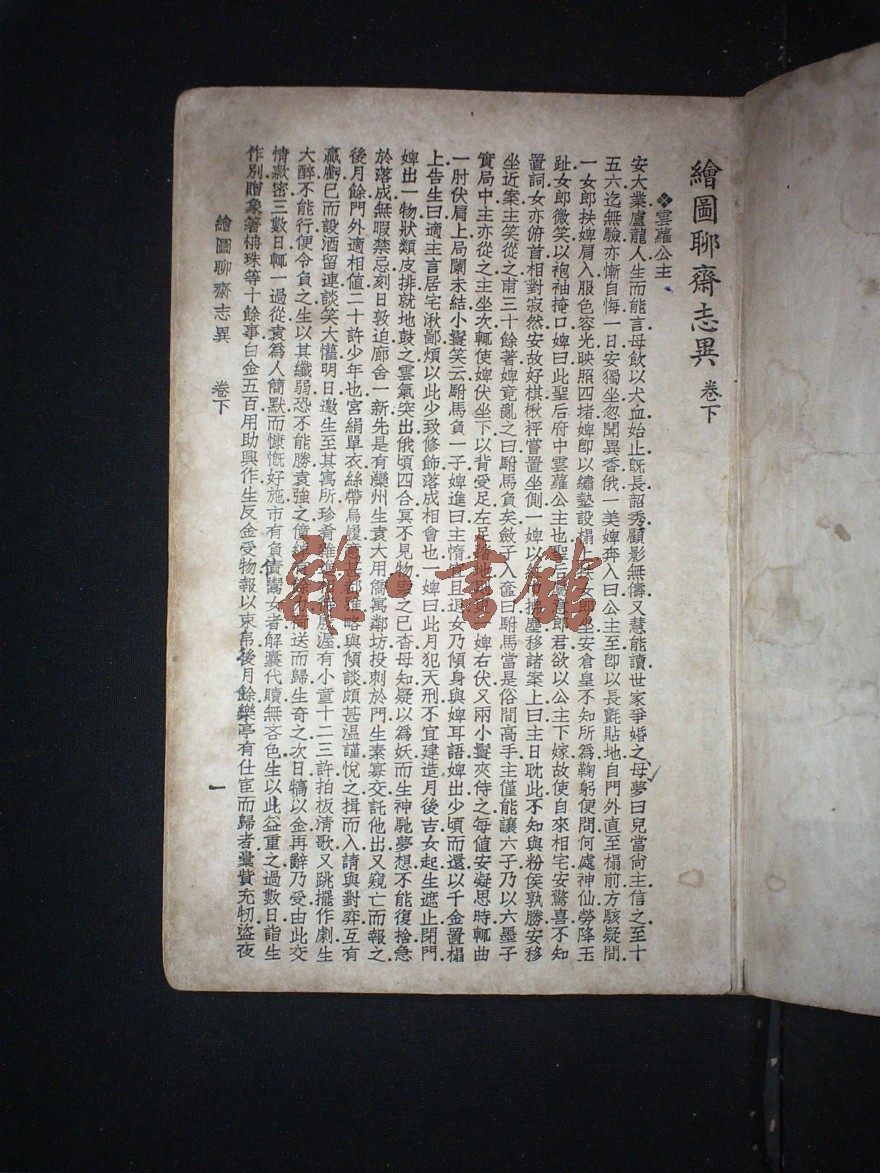 繪圖聊齋志異 卷下
❖雲蘿公主
安大業盧龍人生而能言母飲以犬血始止旣長韶秀顧影無儔又慧能讀世家爭婚之母夢曰兒當尙主信之至十
五六迄無驗亦漸自悔一日安獨坐忽聞異香俄一美婢奔入曰公主至卽以長氈貼地自門外直至榻前方駭疑間
一女郎扶婢肩入服色容光映照四堵婢卽以繡墊設榻上扶女郎坐安倉皇不知所爲鞠躬便問何處神仙勞降玉
趾女郎微笑以袍袖掩口婢曰此聖后府中雲蘿公主也聖后屬意郎君欲以公主下嫁故使自來相宅安驚喜不知
置詞女亦俯首相對寂然安故好棋楸枰嘗置坐側一婢以紅巾拂塵移諸案上曰主日耽此不知與粉侯孰勝安移
坐近案主笑從之甫三十餘著婢竟亂之曰駙馬負矣斂子入盒曰駙馬當是俗間高手主僅能讓六子乃以六墨子
實局中主亦從之主坐次輒使婢伏坐下以背受足左足踏地則更一婢右伏又兩小鬟夾侍之每値安凝思時輒曲
一肘伏肩上局闌未結小鬟笑云駙馬負一子婢進曰主惰宜且退女乃傾身與婢耳語婢出少頃而還以千金置榻
上告生曰適主言居宅湫鄙煩以此少致修飾落成相會也一婢曰此月犯天刑不宜建造月後吉女起生遮止閉門
婢出一物狀類皮排就地鼓之雲氣突出俄頃四合冥不見物索之已杳母知疑以爲妖而生神馳夢想不能復捨急
於落成無暇禁忌刻日敦迫廊舍一新先是有灤州生袁大用僑寓鄰坊投刺於門生素寡交託他出又窺亡而報之
後月餘門外適相値二十許少年也宮絹單衣絲帶烏履意甚都雅略與傾談頗甚溫謹悅之揖而入請與對弈互有
贏虧已而設酒留連談笑大懽明日邀生至其寓所珍肴雜進相待殷渥有小童十二三許拍板淸歌又跳擲作劇生
大醉不能行便令負之生以其纖弱恐不能勝袁強之僮綽有餘力荷送而歸生奇之次日犒以金再辭乃受由此交
情款密三數日輒一過從袁爲人簡默而慷慨好施市有負債鬻女者解囊代贖無吝色生以此益重之過數日詣生
作別贈象箸枏珠等十餘事白金五百用助興作生反金受物報以束帛後月餘樂亭有仕宦而歸者橐貲充牣盜夜
繪圖聊齋志異 卷下 一
雜·書館